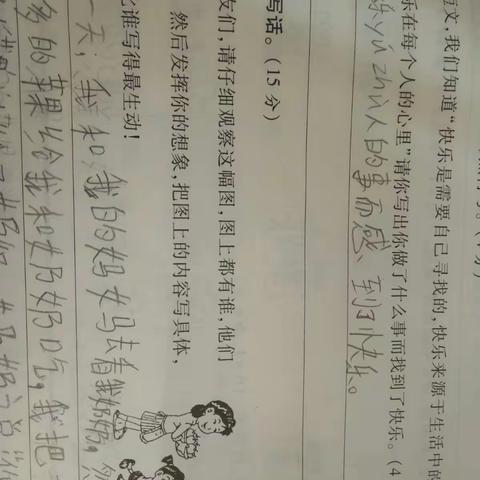 短文,我们知道“快乐是需要自己寻找的,快乐来源于生活中的
乐在每个人的心里”请你写出你做了什么事而找到了快乐。(4
人的事而感、到了快乐。
写话。(15分)
友们,请仔细观察这幅图,图上都有谁,他们
然后发挥你的想象,把图上的内容写具体,
比谁写得最生动!
一天,我和我的妈妈去看我奶奶,
多的苹果给我和奶奶吃,我把